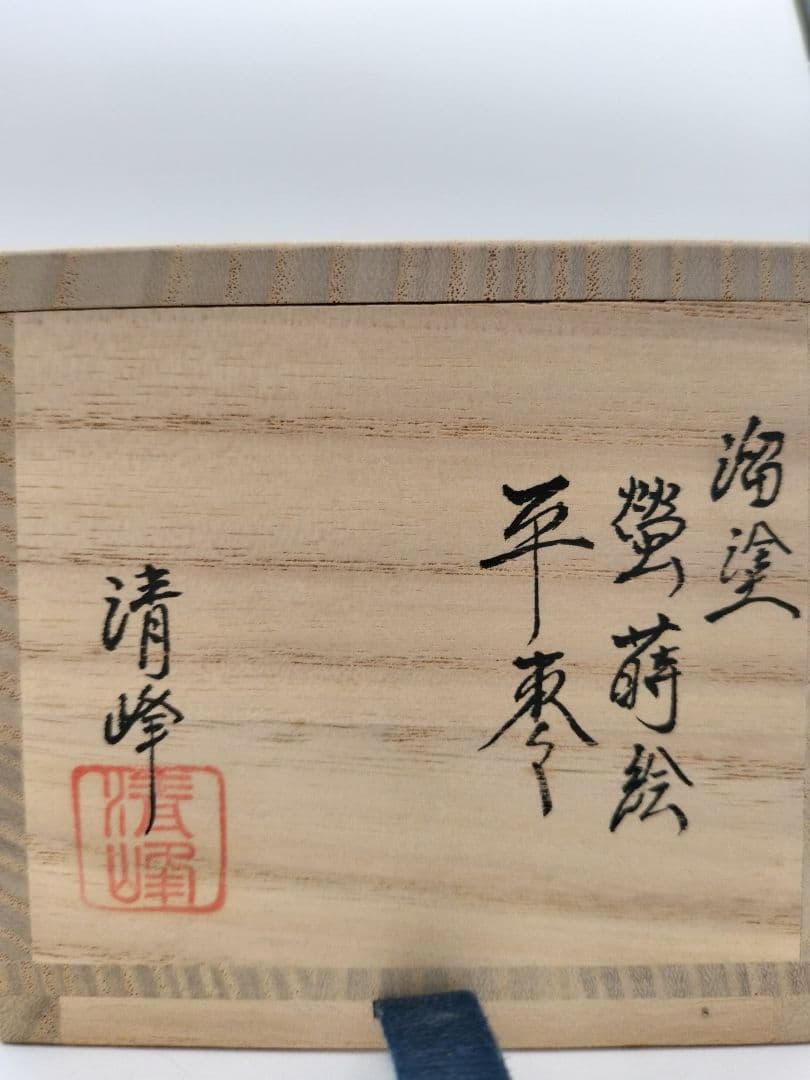 溜塗
螢蒔絵
平棗
清峰
清峰